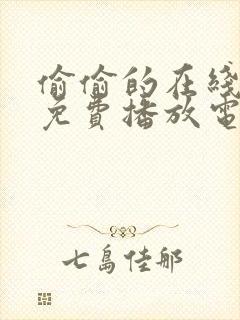 偷偷的在綫
免費播放電
七島佳那